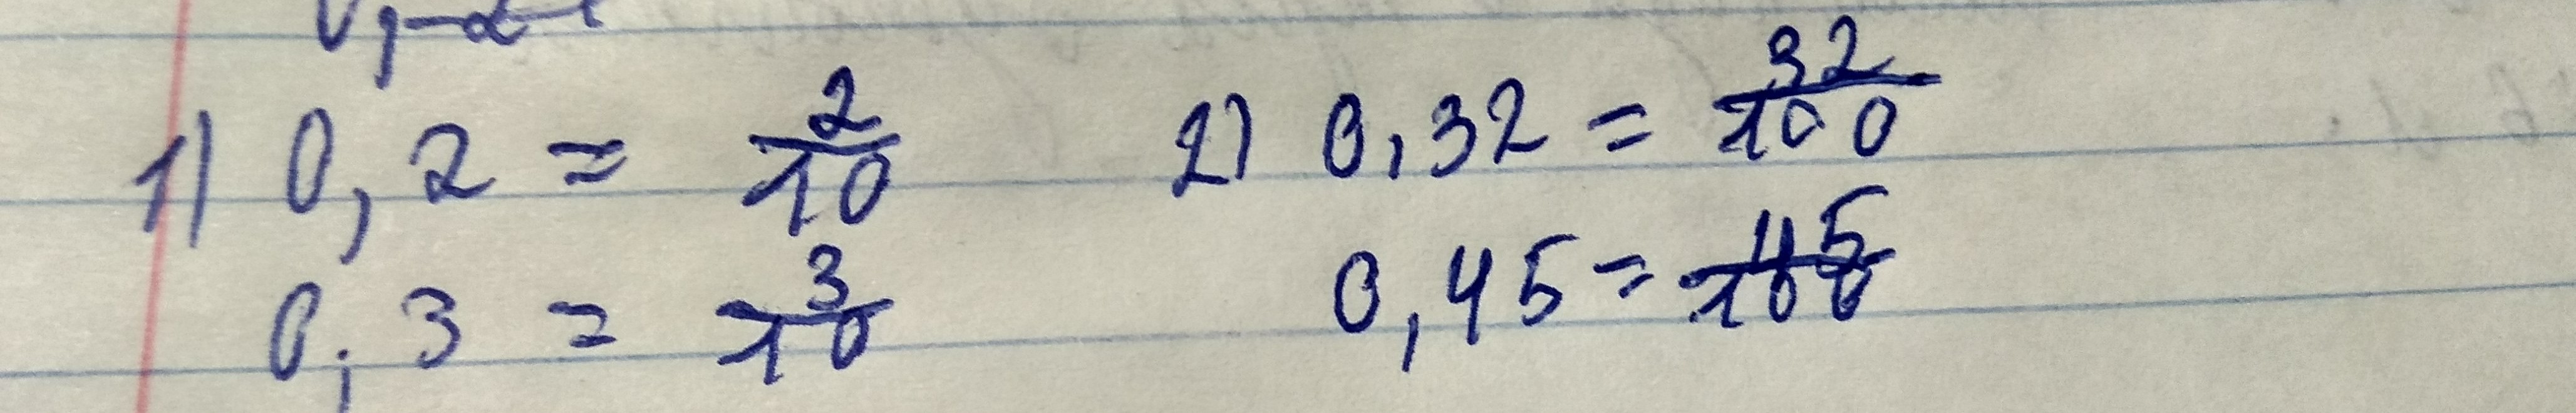 1) 0,2 = 2/10
0,3 = 3/10
2) 0,32 = 32/100
0,45 = 45/100